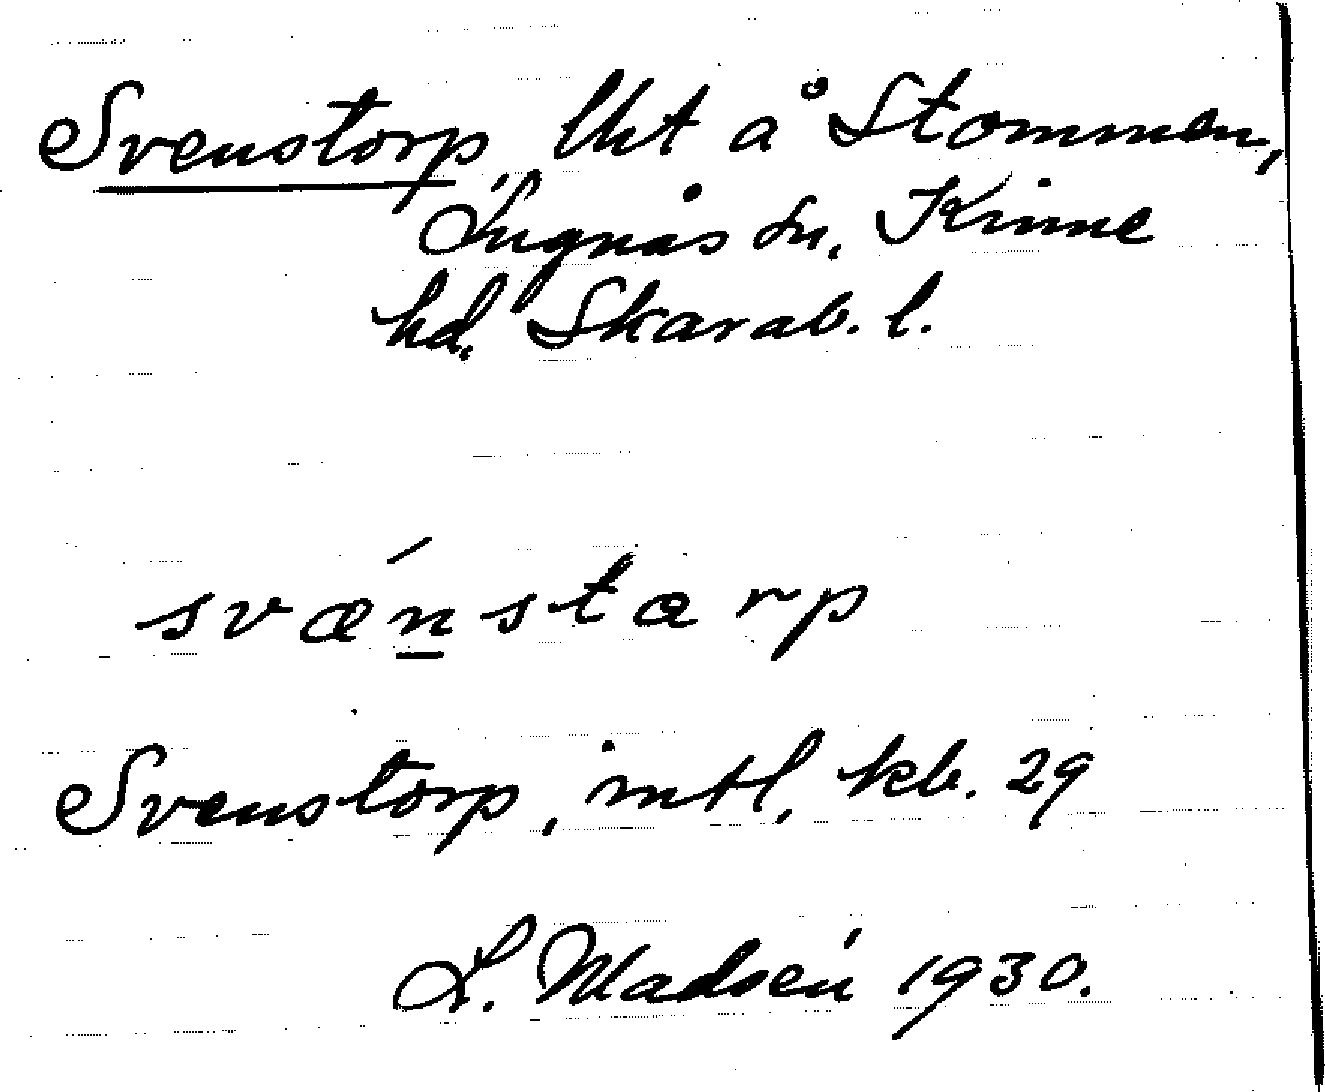 Svenstorp, lht å Stommen,
Lugnås sn, Kinne
hd, Skarab. l.
svǽn̲starp
Svenstorp, mtl, kb. 29
L. Madsén 1930.